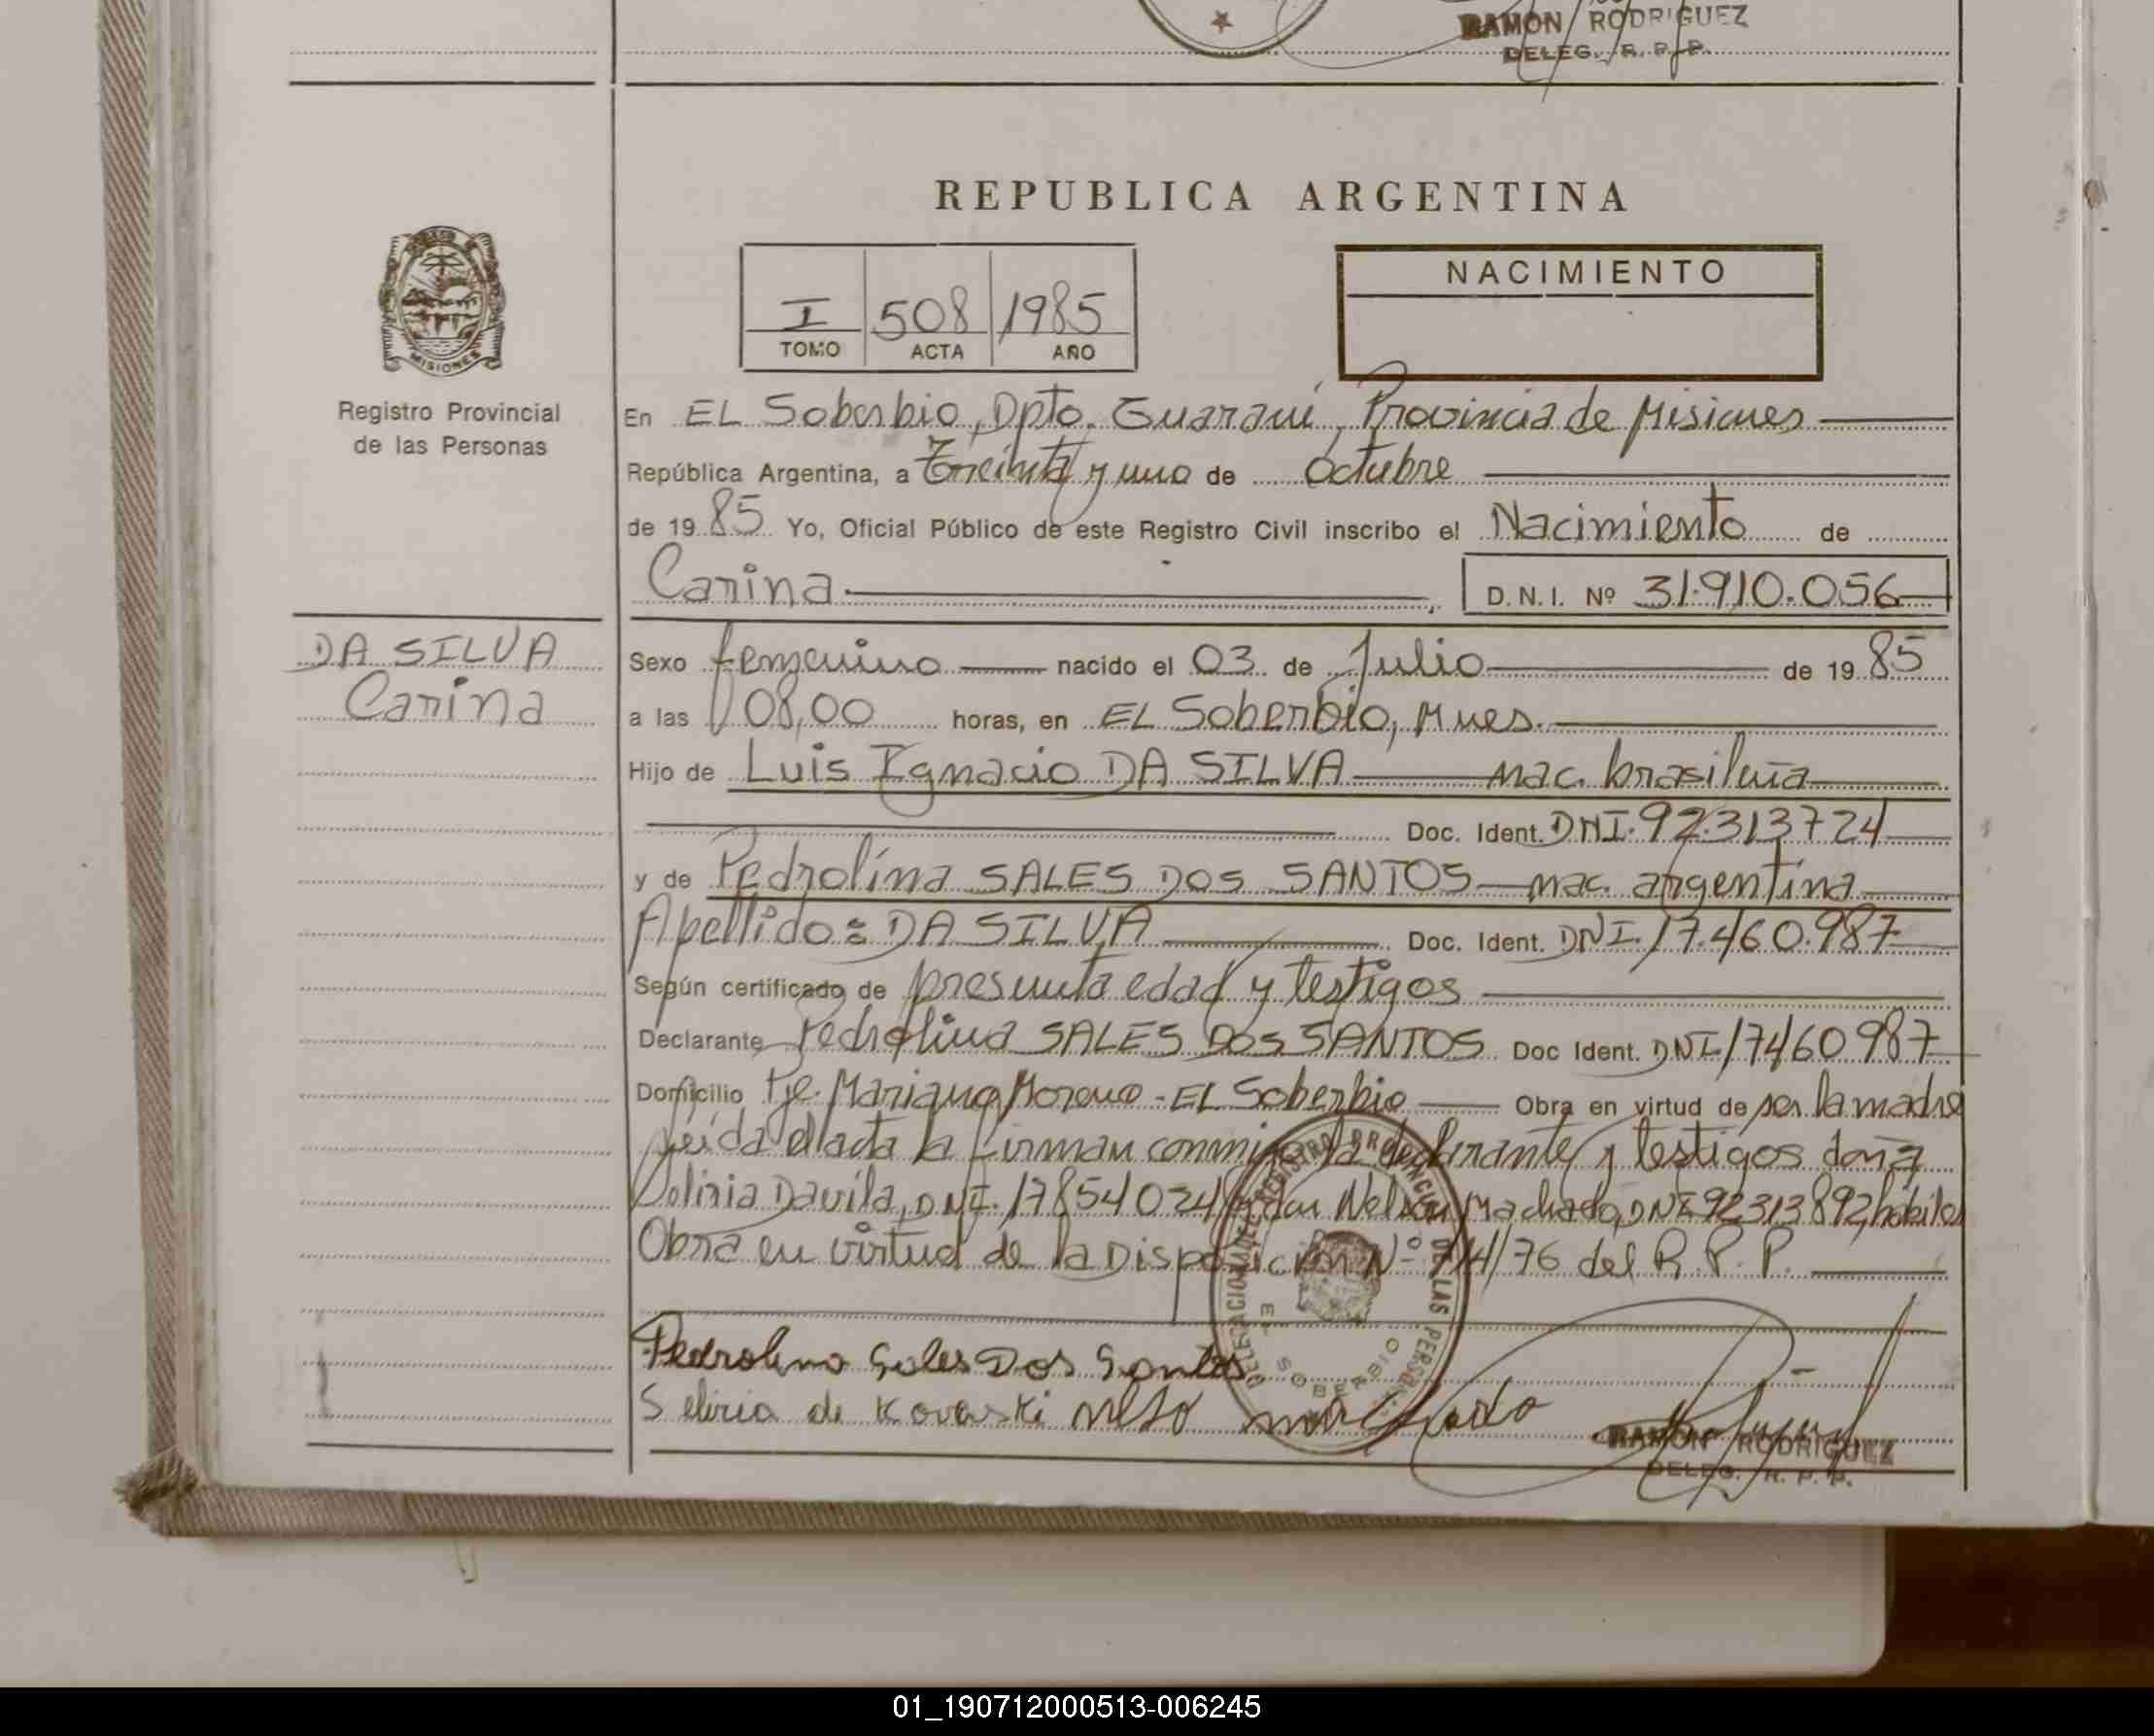 RAMON RODRIGUEZ
DELEG. R. P. P.
REPUBLICA ARGENTINA
I 508 1985
TOMO ACTA AÑO
NACIMIENTO
MISIONES
Registro Provincial
de las Personas
En EL Soberbio, Dpto. Guaraní, Provincia de Misiones
República Argentina, a Treinta y uno de octubre
de 19 85 Yo, Oficial Público de este Registro Civil inscribo el Nacimiento de
Carina D.N.I. Nº 31.910.056
DA SILVA
Carina
Sexo femenino nacido el 03 de Julio de 19 85
a las 08,00 horas, en EL Soberbio, Mnes.
Hijo de Luis Ignacio DA SILVA nac. brasileña
Doc. Ident. DNI. 92.313724
y de Pedrolina SALES DOS SANTOS nac. argentina
Apellido: DA SILVA Doc. Ident. DNI. 17.460.987
Según certificado de presunta edad y testigos
Declarante Pedrolina SALES DOS SANTOS Doc Ident. DNI 17460987
Domicilio Pje. Mariano Moreno - EL Soberbio Obra en virtud de ser la madre
leída el acta la firman conmigo la declarante y testigos doña
Davila, DNI. 17854024 y don Nelson Machado, DNI 92313892 hábiles
Obra en virtud de la Disposición Nº /76 del R. P. P.
DELEGACION DE REGISTRO PROVINCIAL DE LAS PERSONAS
EL SOBERBIO
Pedrolina Sales Dos Santos
de Kovaski
RAMON RODRIGUEZ
DELEG. R. P. P.
01_190712000513-006245